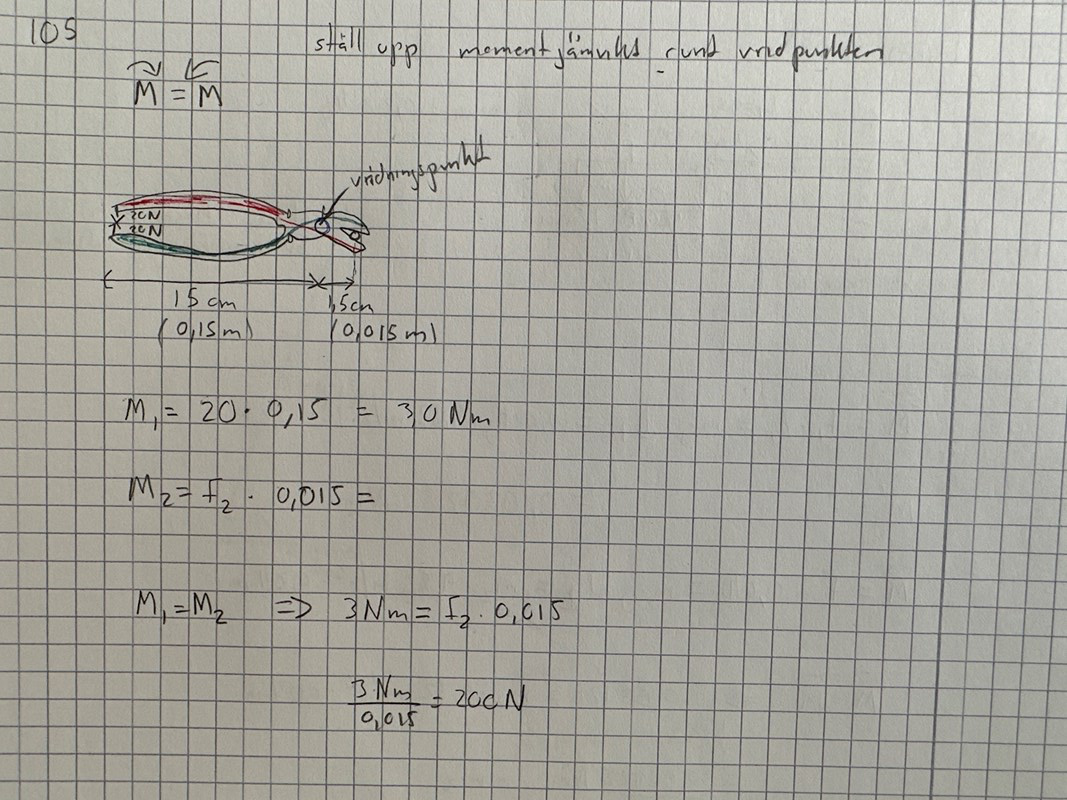 105
ställ upp momentjämvikt runt vridpunkten
M = M
vridningspunkt
20N
20N
15 cm 1,5cm
(0,15m) (0,015m)
M₁ = 20 · 0,15 = 3,0 Nm
M₂ = F₂ · 0,015 =
M₁ = M₂ => 3Nm = F₂ · 0,015
3 Nm / 0,015 = 200N